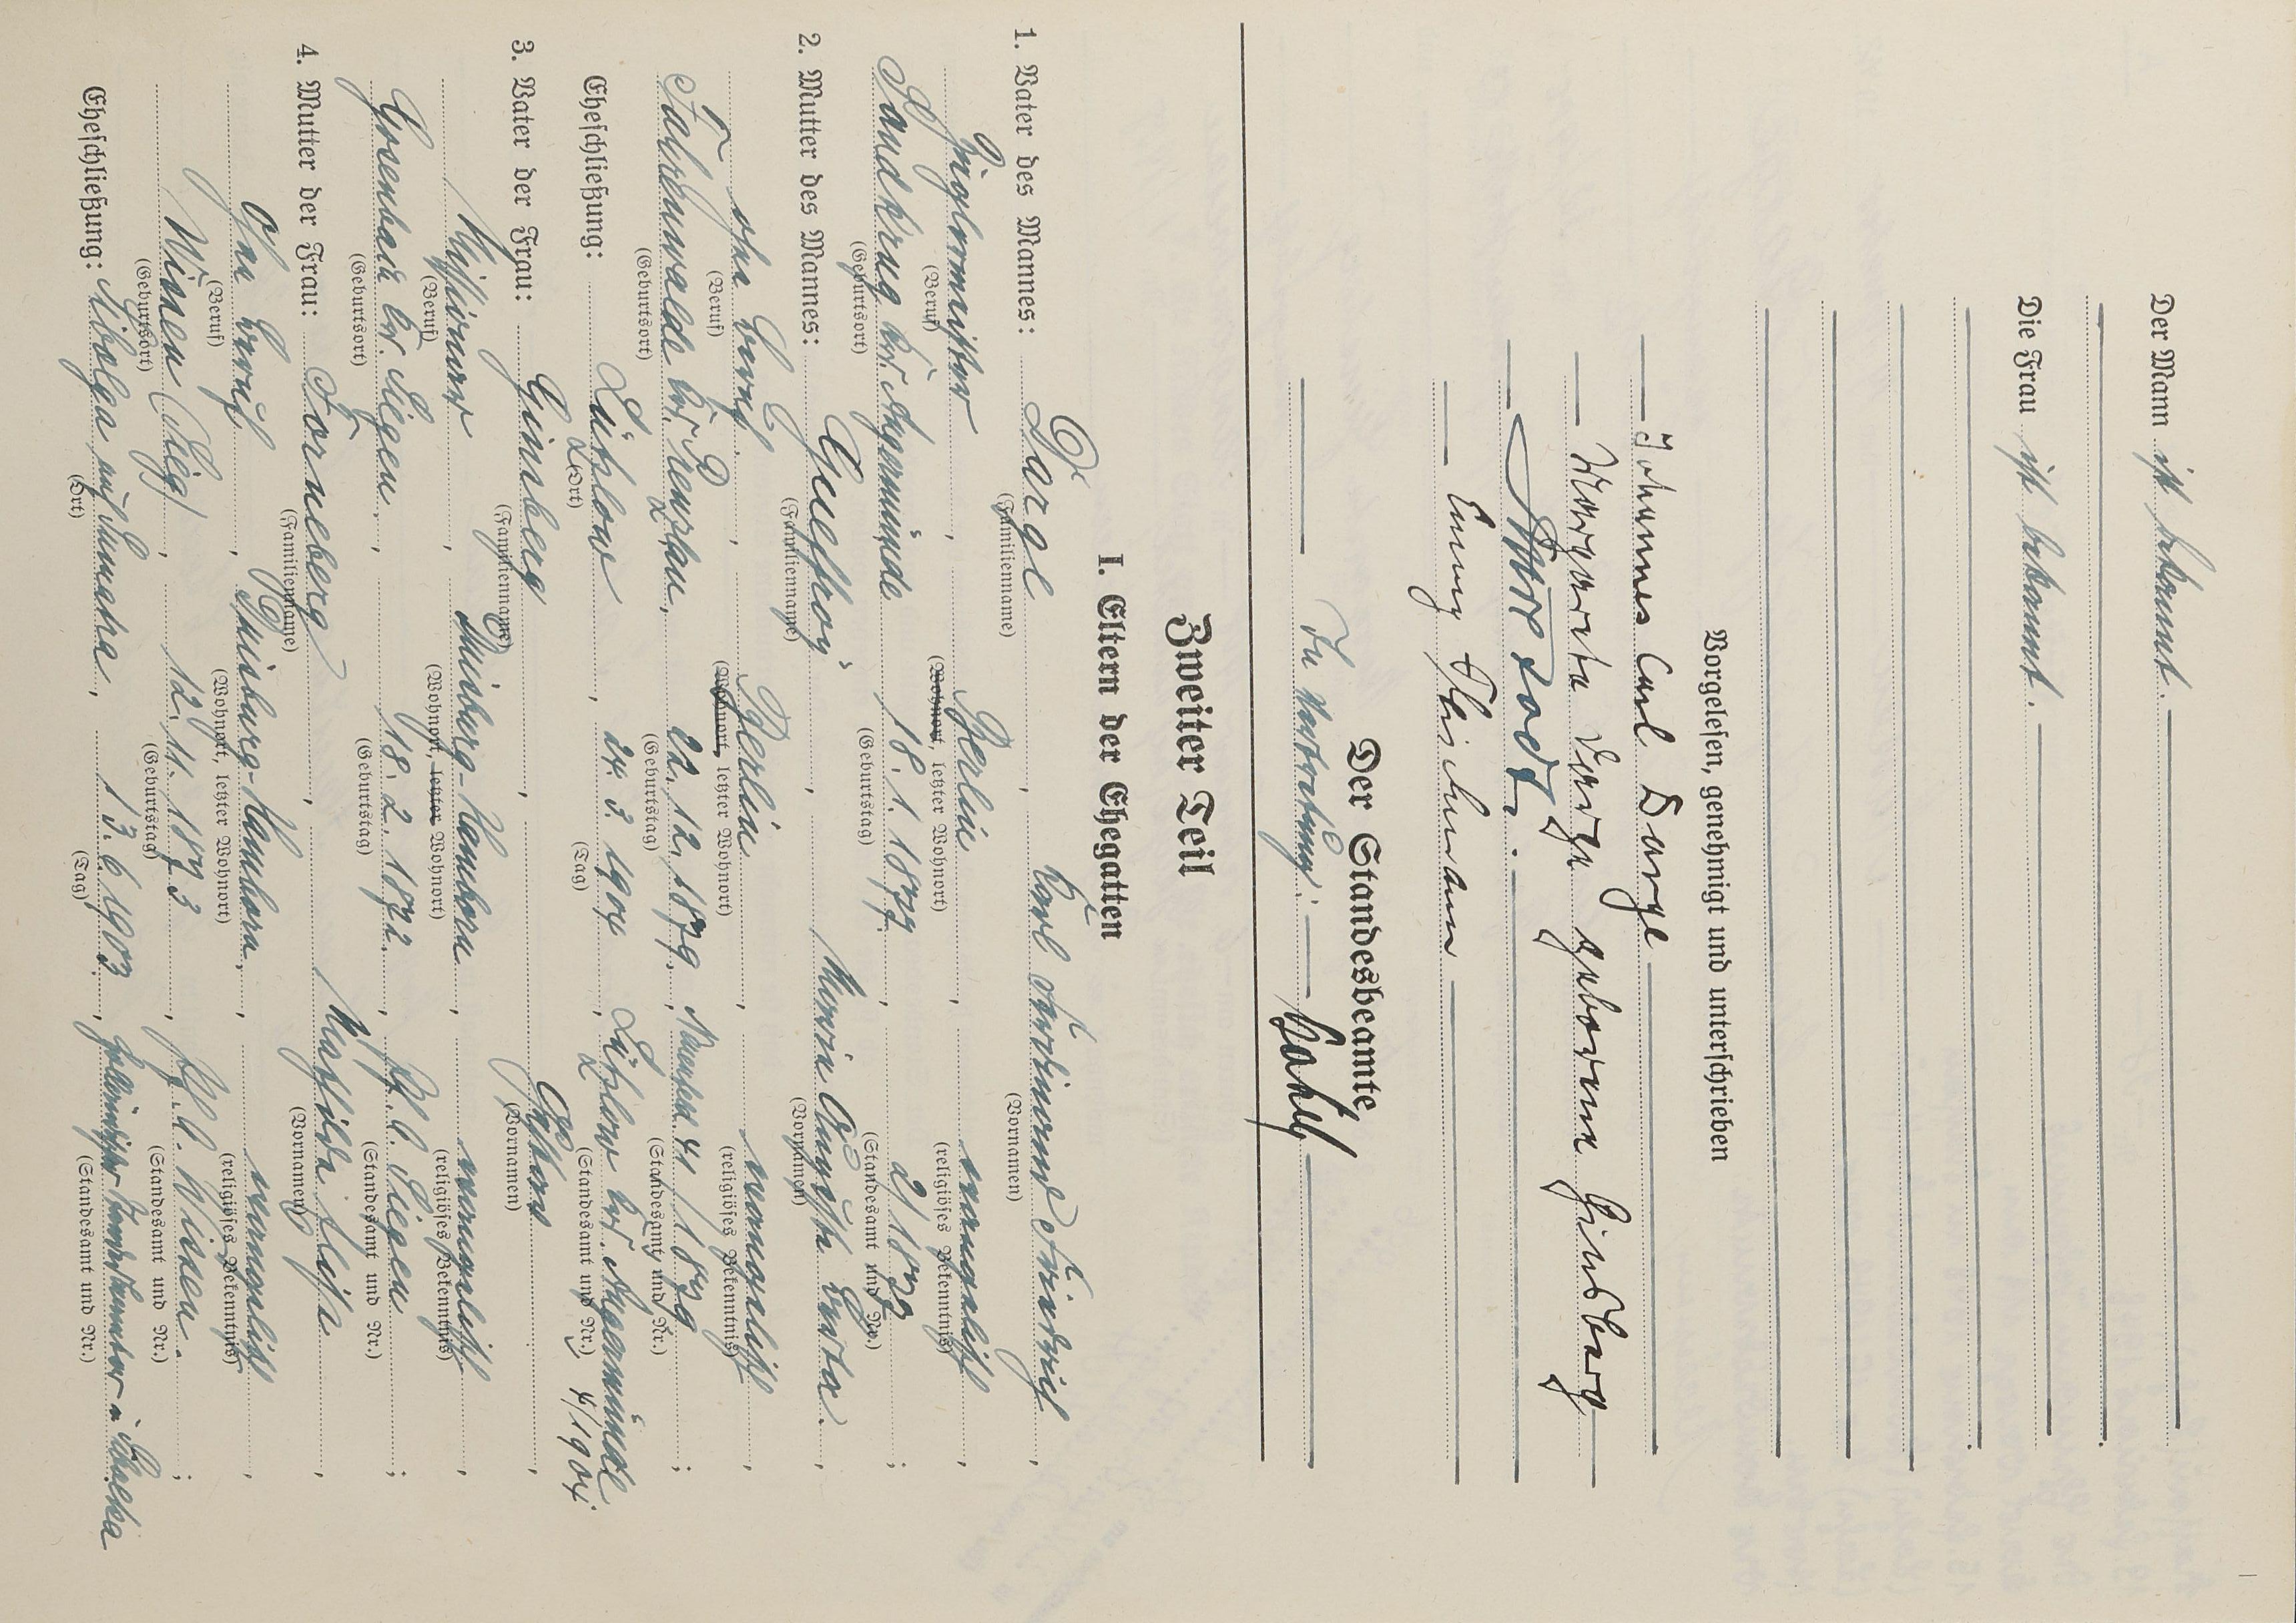 Der Mann ist bekannt.
Die Frau ist bekannt.
Vorgelesen, genehmigt und unterschrieben
Johannes Carl Darge
Margarete Darge geborene Ginsberg
Emmy Fleischmann
Der Standesbeamte
In Vertretung:
Zweiter Teil
I. Eltern der Ehegatten
1. Vater des Mannes: Darge, Karl Ferdinand Friedrich,
(Familienname) (Vornamen)
Zieglermeister, Berlin, evangelisch,
(Beruf) (Wohnort, letzter Wohnort) (religiöses Bekenntnis)
Sandkrug bei Angermünde 18. 1. 1877, 2/1877;
(Geburtsort) (Geburtstag) (Standesamt und Nr.)
2. Mutter des Mannes: Gueffroy, Marie Auguste Berta,
(Familienname) (Vornamen)
ohne Beruf, Berlin, evangelisch,
(Beruf) (Wohnort, letzter Wohnort) (religiöses Bekenntnis)
Falkenwalde bei Prenzlau, 22. 12. 1879, 41/1879;
(Geburtsort) (Geburtstag) (Standesamt und Nr.)
Eheschließung: Lützlow, 24. 3. 1904, Lützlow bei Angermünde 4/1904.
(Ort) (Tag) (Standesamt und Nr.)
3. Vater der Frau: Ginsberg, Gustav,
(Familienname) (Vornamen)
Missionar, Duisburg-Hamborn, evangelisch,
(Beruf) (Wohnort, letzter Wohnort) (religiöses Bekenntnis)
Gosenbach Kr. Siegen, 18. 2. 1872, St. A. Siegen;
(Geburtsort) (Geburtstag) (Standesamt und Nr.)
4. Mutter der Frau: Forneberg, Mathilde Luise,
(Familienname) (Vornamen)
ohne Beruf, Duisburg-Hamborn, evangelisch,
(Beruf) (Wohnort, letzter Wohnort) (religiöses Bekenntnis)
Wissen (Sieg), 12. 11. 1873, St. A. Wissen;
(Geburtsort) (Geburtstag) (Standesamt und Nr.)
Eheschließung: Sibolga auf Sumatra, 13. 6. 1903,
(Ort) (Tag) (Standesamt und Nr.)